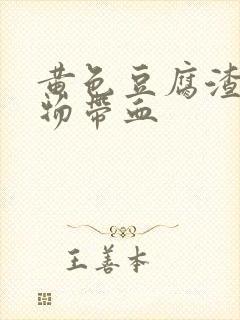 黄色豆腐渣
物带血
王善本